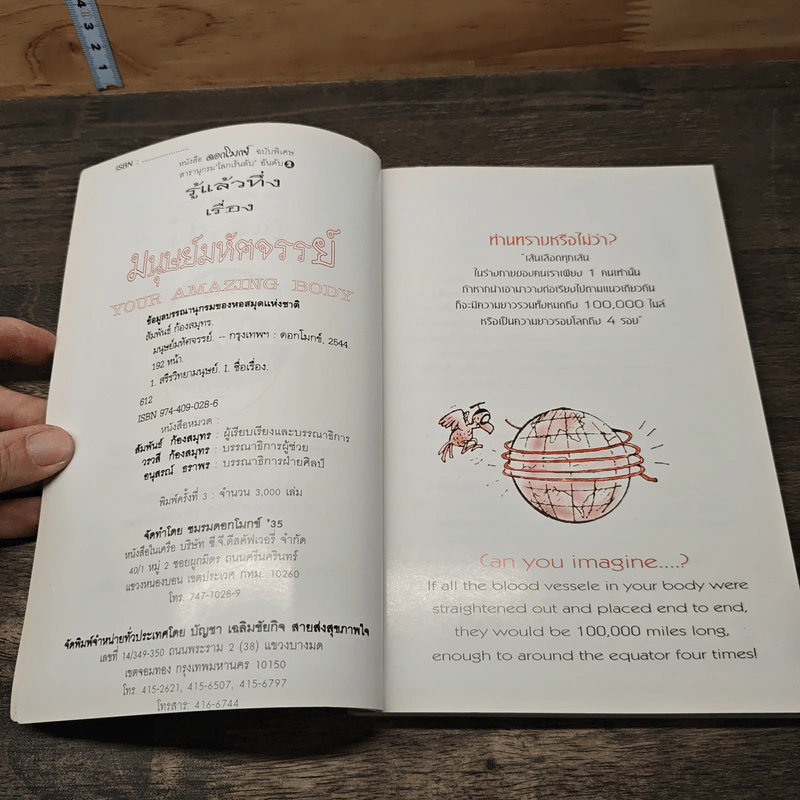 4 3 2 1
ISBN : ....................
หนังสือ ดอกโมกข์ ฉบับพิเศษ
สารานุกรม"โลกเร้นลับ" อันดับ ๑
รู้แล้วทึ่ง
เรื่อง
มนุษย์มหัศจรรย์
YOUR AMAZING BODY
ข้อมูลบรรณานุกรมของหอสมุดแห่งชาติ
สัมพันธ์ ก้องสมุทร.
มนุษย์มหัศจรรย์. -- กรุงเทพฯ : ดอกโมกข์, 2544.
192 หน้า.
1. สรีรวิทยามนุษย์. I. ชื่อเรื่อง.
612
ISBN 974-409-028-6
หนังสือหมวด :
สัมพันธ์ ก้องสมุทร : ผู้เรียบเรียงและบรรณาธิการ
วรวสี ก้องสมุทร : บรรณาธิการผู้ช่วย
อนุสรณ์ ธราพร : บรรณาธิการฝ่ายศิลป์
พิมพ์ครั้งที่ 3 : จำนวน 3,000 เล่ม
จัดทำโดย ชมรมดอกโมกข์ '35
หนังสือในเครือ บริษัท ซี.จี.ดีสคัฟเวอรี่ จำกัด
40/1 หมู่ 2 ซอยผูกมิตร ถนนศรีนครินทร์
แขวงหนองบอน เขตประเวศ กทม. 10260
โทร. 747-1028-9
จัดพิมพ์จำหน่ายทั่วประเทศโดย บัญชา เฉลิมชัยกิจ สายส่งสุขภาพใจ
เลขที่ 14/349-350 ถนนพระราม 2 (38) แขวงบางมด
เขตจอมทอง กรุงเทพมหานคร 10150
โทร. 415-2621, 415-6507, 415-6797
โทรสาร: 416-6744
ท่านทราบหรือไม่ว่า?
"เส้นเลือดทุกเส้น
ในร่างกายของคนเราเพียง 1 คนเท่านั้น
ถ้าหากนำเอามาวางต่อเรียงไปตามแนวเดียวกัน
ก็จะมีความยาวรวมทั้งหมดถึง 100,000 ไมล์
หรือเป็นความยาวรอบโลกถึง 4 รอบ"
Can you imagine....?
If all the blood vessele in your body were
straightened out and placed end to end,
they would be 100,000 miles long,
enough to around the equator four times!